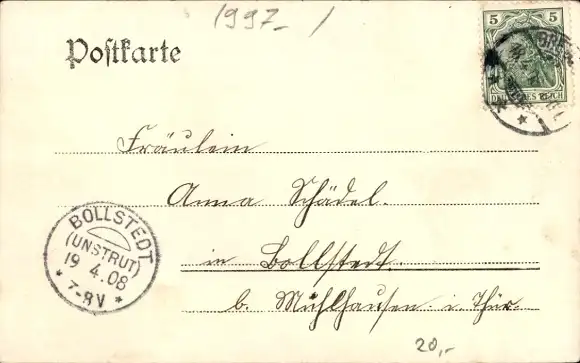 1997 -/
Postkarte
5 5
DEUTSCHES REICH
Fräulein
Anna Schädel.
in Bollstedt
b. Mühlhausen i. Thür.
BOLLSTEDT
(UNSTRUT)
19 4.08
* 7-8V *
20,-